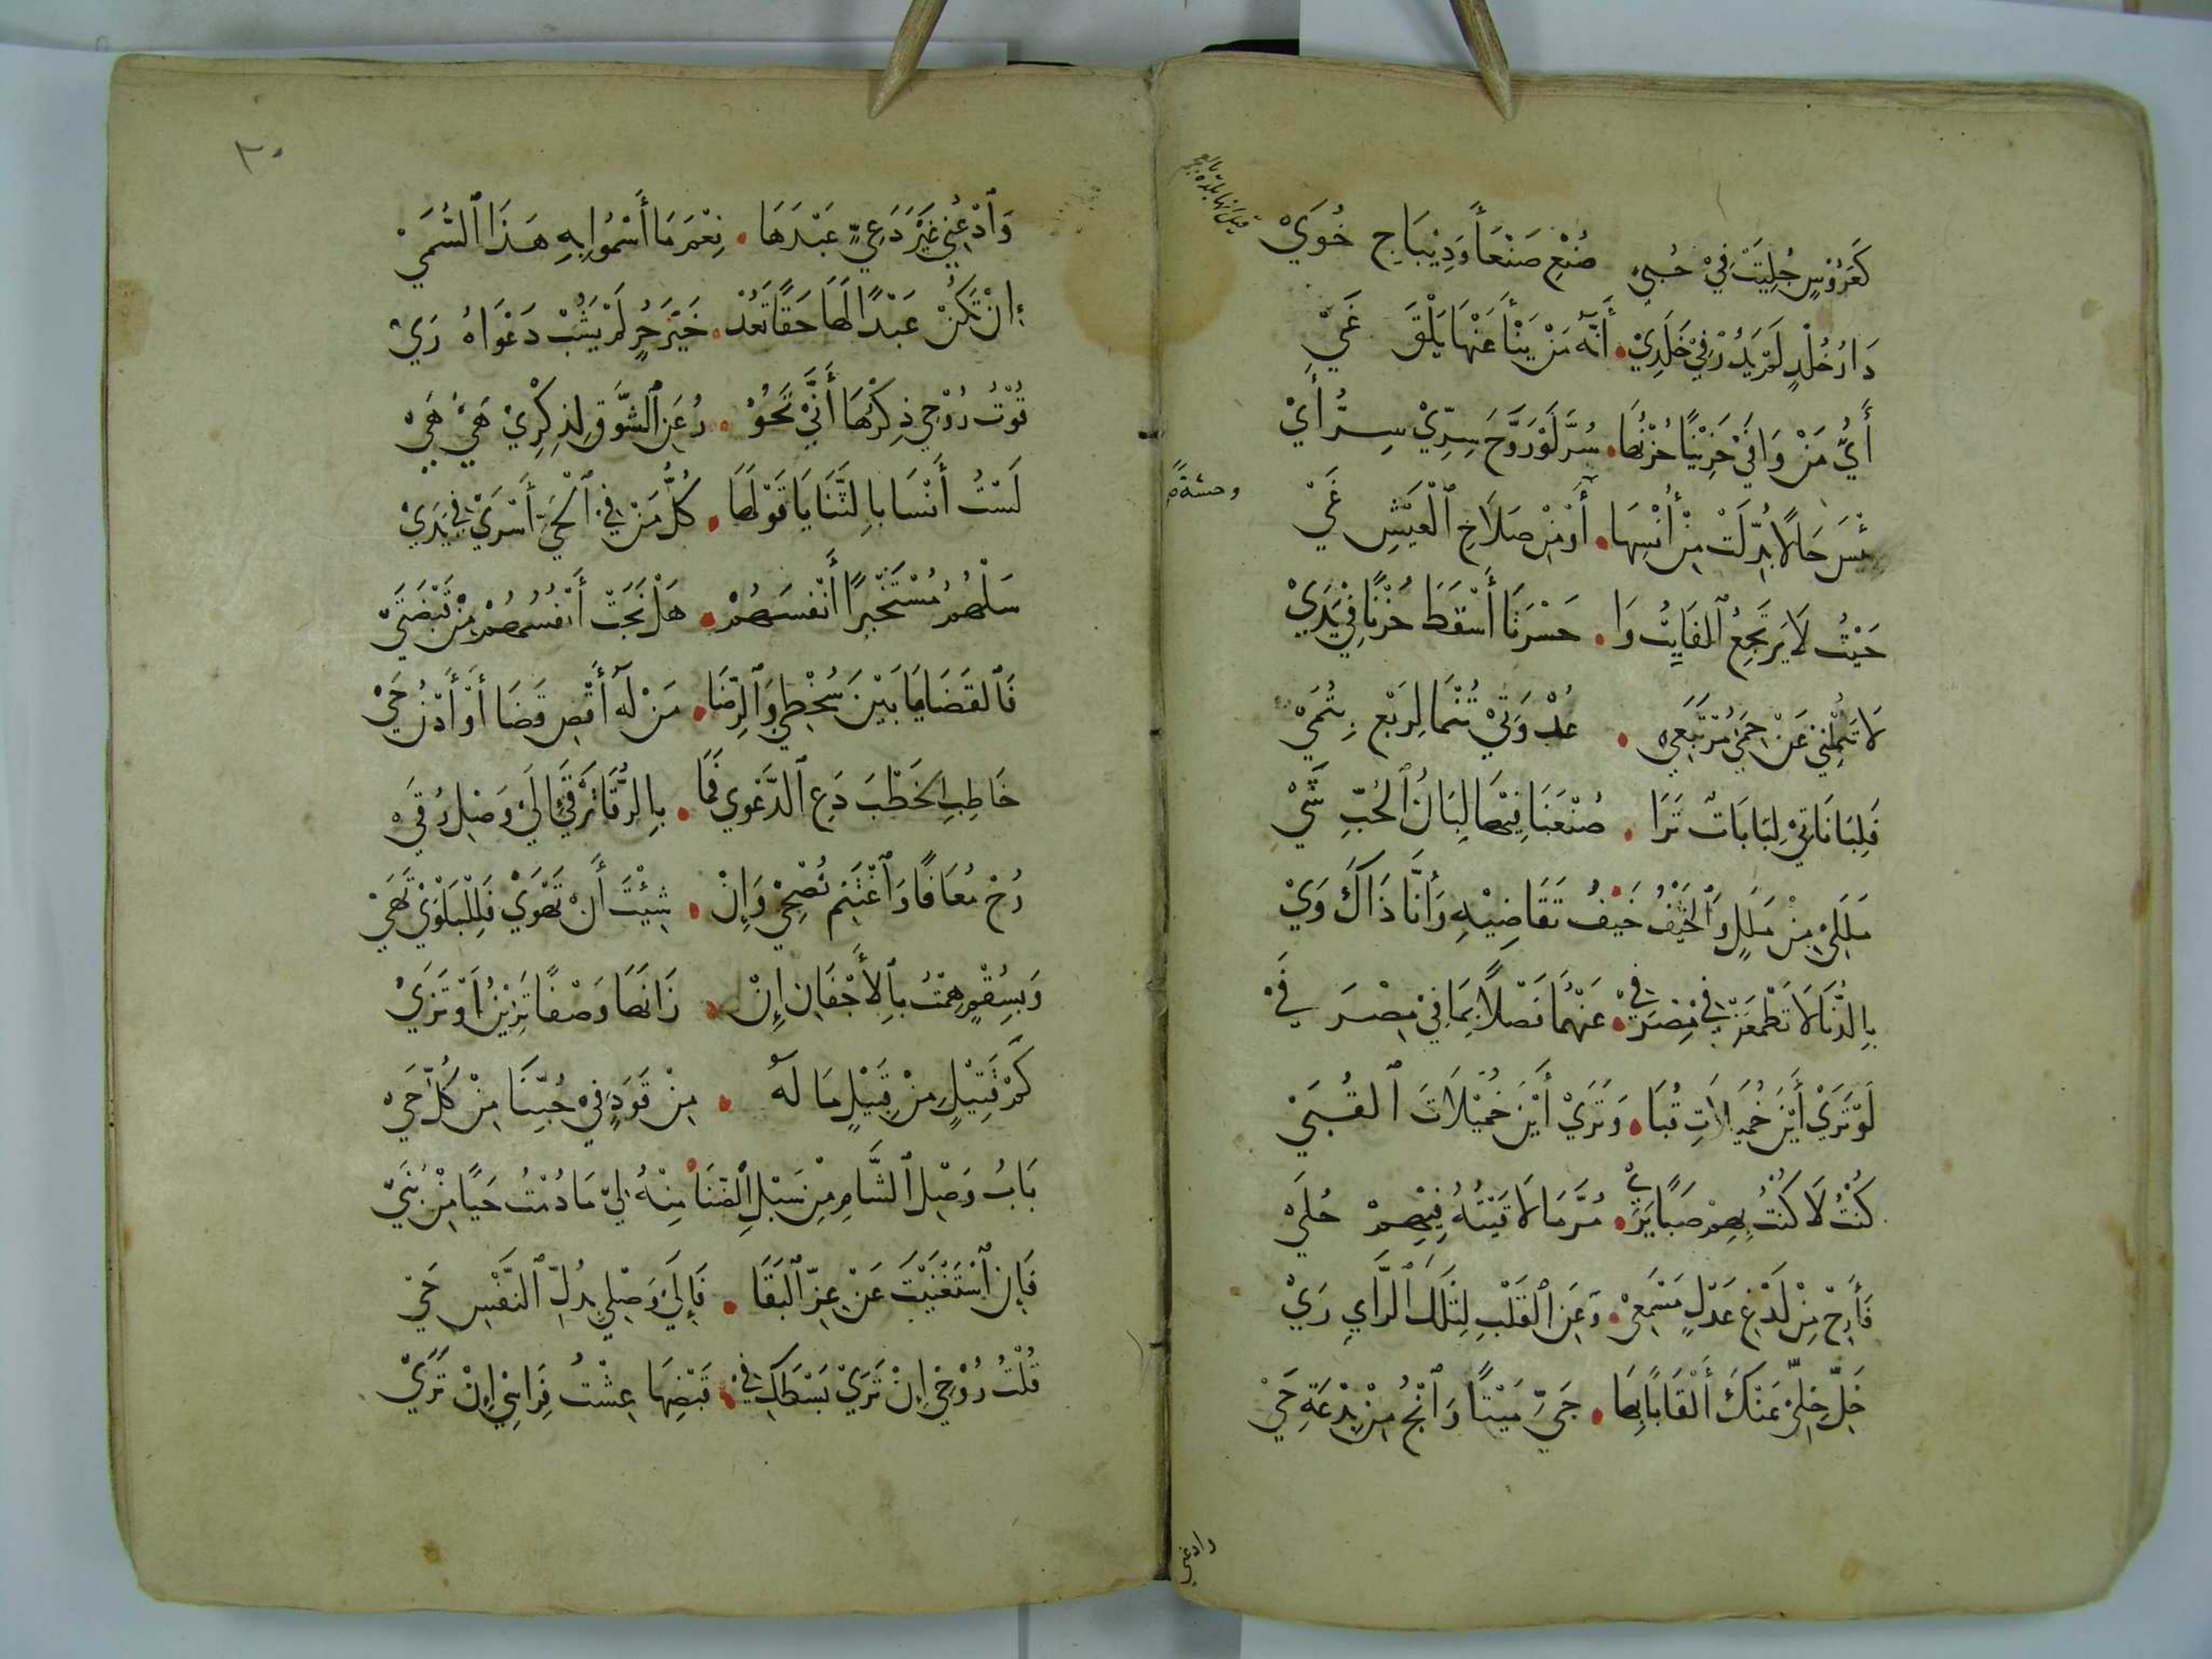 كَعَرُوْسٍ جُلِيَتْ فِيْ حُبَيٍ صُنْعِ صَنْعَأَ وَدِيْبَاجِ خُوَيْ
دَارُ خُلْدٍ لَمْ يَدُرْ فِيْ خَلَدِيْ . أَنَّهُ مَنْ يَنْأَ عَنْهَا يَلْقَ غَيْ
أَيُّ مَنْ وَافَيْ حَزِيْنًا حُزْنُهَا . سُرَّ لَوْ رَوَّحَ سِرِّيْ سِرُّ أَيْ
بِئْسَ حَالًا بُدِّلَتْ مِنْ أُنْسِهَا . أَوْ مِنْ صَلَاحِ الْعَيْشِ غَيْ
وحشةً
حَيْثُ لَا يَرْتَجِعُ الفَايِتُ وَا . حَسْرَتَا أَسْقَطَ حُزْنًا فِيْ يَدَيْ
لَا تَمِلْنِيْ عَنْ حِمَيْ مُرْتَبَعِيْ . عُدْوَتَيْ تَيْمَا لِرَبْعٍ بِتُمَيْ
فَلِبَانَاتِيْ لِبَانَاتٌ تَرَا . ضُعْنَا فِيْهَا لِبَانُ الْحُبِّ شَيْ
مَلَلِيْ مِنْ مَلَلٍ وَالْخَيْفُ خَيْفٌ تَقَاضِيْهِ وَأَنَّا ذَاكَ وَيْ
بِالدُّنَا لَا تَطْمَعَنْ فِيْ مِصْرَفِيْ . عَنْهُمَا فَضْلًا بِمَا فِيْ مِصْرَ فَيْ
لَوْ تَرَيْ أَيْنَ خُمَيْلَاتِ قُبَا . وَتَرَيْ أَيْنَ خُمَيْلَاتَ القُبَيْ
كُنْتُ لَا كُنْتُ بِهِمْ صَبًّا يَرَيْ . مُرَّ مَا لَاقَيْتُهُ فِيْهِمْ حُلَيْ
فَأَرِحْ مِنْ لَدْغِ عَذْلٍ مَسْمَعِيْ . وَعَنِ القَلْبِ لِتِلْكَ الرَّايِ زَيْ
خَلِّ خِلِّيْ عَنْكَ أَلْقَابًا بِهَا . جَيِّ مَيْتًا وَانْجُ مِنْ بِدْعَةِ جَيْ
وادعني
٣٠
وَادْعُنِيْ غَيْرَ دَعِيٍّ عَبْدَهَا . نِعْمَ مَا أَسْمُوا بِهِ هَذَا السُّمَيْ
إِنْ تَكُنْ عَبْدًا لَهَا حَقًّا تَعُدْ . خَيْرَ حُرٍّ لَمْ يَشُبْ دَعْوَاهُ زَيْ
قُوْتُ رُوْحِيْ ذِكْرُهَا أَنَّيْ تَحُوْ . رُ عَنِ الشَّوْقِ لِذِكْرِيْ هَيِّ هَيْ
لَسْتُ أَنْسَا بِالثَّنَايَا قَوْلَهَا . كُلُّ مَنْ فِيْ الْحَيِّ أَسْرَيْ فِيْ يَدَيْ
سَلْهُمُ مُسْتَخْبِرًا أَنْفُسَهُمْ . هَلْ نَجَتْ أَنْفُسُهُمْ مِنْ قَبْضَتَيْ
فَالقَضَايَا بَيْنَ سُخْطِيْ وَالرِّضَا . مَنْ لَهُ أُقْصِ قَضَا أَوْ أُدْنِ حَيْ
خَاطِبِ الخَطْبَ دَعِ الدَّعْوِي فَمَا . بِالرُّقَا تَرْقَيْ إِلَيْ وَصْلِ رُقَيْ
رُحْ مُعَافًا وَاغْتَنِمْ نُصْحِيْ وَإِنْ . شِيْتَ أَنْ تَهْوَيْ فَلِلْبَلْوَيْ تَهَيْ
وَبِسُقْمٍ هِمْتُ بِالْأَجْفَانِ إِنْ . زَانَهَا وَصْفًا تَزِيْنُ أَوْ تَزَيْ
كَمْ قَتِيْلٍ مِنْ قَبِيْلٍ مَا لَهُ . مِنْ قَوَدٍ فِيْ حُبِّنَا مِنْ كُلِّ حَيْ
بَابُ وَصْلِ السَّامِ مِنْ سُبْلِ الضَّنَا مِنْهُ لِيْ مَا دُمْتُ حَيًّا مِنْ بُنَيْ
فَإِنِ اسْتَغْنَيْتَ عَنْ عِزِّ الْبَقَا . فَإِلَيْ وَصْلِيْ بِبَذْلِ النَّفْسِ حَيْ
قُلْتُ رُوْحِيْ إِنْ تَرَيْ بَسْطَكِ فِيْ . قَبْضِهَا عِشْتُ فَرَائِيْ إِنْ تَرَيْ